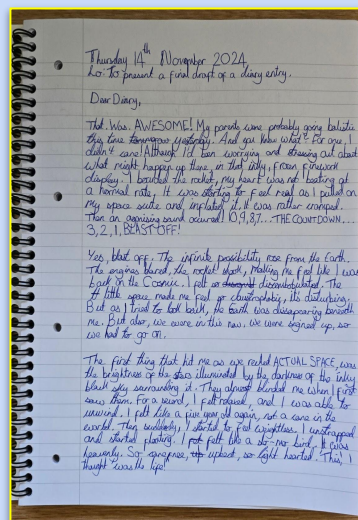 Thursday 14th November 2024
Lo: To present a final draft of a diary entry.
Dear Diary,
That. Was. AWESOME! My parents were probably going balistic
this time yesterday. And you know what? For one, I
didn't care! Although I'd been worrying and stressing out about
what might happen up there, in that inky, frozen firework
display. I boarded the rocket, my heart was not beating at
a normal rate, it was starting to feel real as I pulled on
my space suite and inflated it. It was rather cramped.
Then an agonising sound occured! 10,9,8,7... THE COUNTDOWN...
3, 2, 1, BLAST OFF!
Yes, blast off. The infinite possibility rose from the Earth.
The engines blared, the rocket shook, making me feel like I was
back on the Cosmic. I felt so discombobulated. The
little space made me feel so claustrophobic, its disturbing.
But as I tried to look back, the Earth was dissapearing beneath
me. But also, we were in this now, we were signed up, so
we had to go on.
The first thing that hit me as we reched ACTUAL SPACE, was
the brightness of the stars illuminated by the darkness of the inky
black sky surrounding it. They almost blinded me when I first
saw them. For a second, I felt relaxed, and I was able to
unwind. I felt like a five year old again, not a care in the
world. Then suddenly, I started to feel weightless. I unstrapped
and started floating. I felt like a slo-mo bird. It was
heavenly. So carefree, upbeat, so light hearted. This, I
thought was the life!